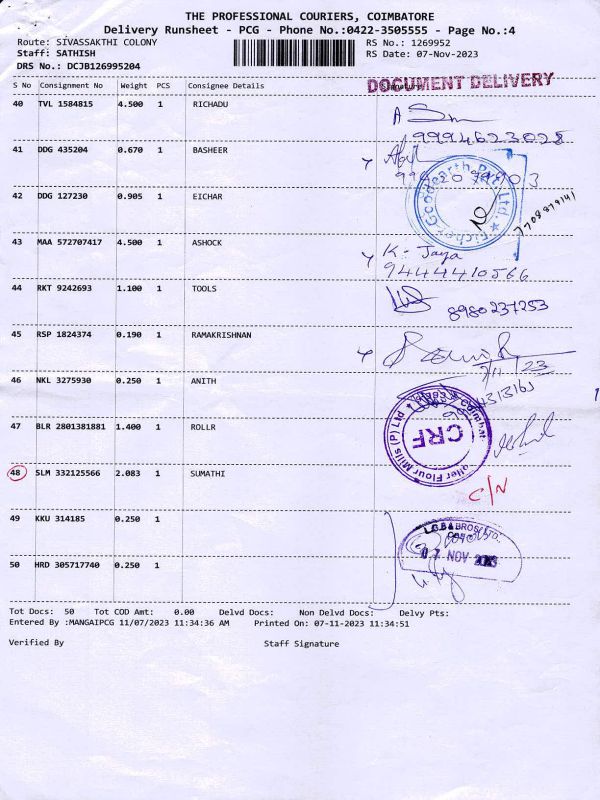 THE PROFESSIONAL COURIERS, COIMBATORE
Delivery Runsheet - PCG - Phone No.:0422-3505555 - Page No.:4
Route: SIVASSAKTHI COLONY
RS No.: 1269952
Staff: SATHISH
RS Date: 07-Nov-2023
DRS No.: DCJB126995204
DOCUMENT DELIVERY
S No Consignment No Weight PCS Consignee Details
40 TVL 1584815 4.500 1 RICHADU
9994623028
41 DDG 435204 0.670 1 BASHEER
42 DDG 127230 0.905 1 EICHAR
Eicher-Goodearth Pvt. Ltd.
43 MAA 572707417 4.500 1 ASHOCK
K. Jaya
9444410566
44 RKT 9242693 1.100 1 TOOLS
8980237253
45 RSP 1824374 0.190 1 RAMAKRISHNAN
7/11/23
46 NKL 3275930 0.250 1 ANITH
47 BLR 2801381881 1.400 1 ROLLR
CRF
Roller Flour Mills (P) Ltd
48 SLM 332125566 2.083 1 SUMATHI
C/N
49 KKU 314185 0.250 1
L.G.B & BROS
07 NOV 2023
50 HRD 305717740 0.250 1
Tot Docs: 50 Tot COD Amt: 0.00 Delvd Docs: Non Delvd Docs: Delvy Pts:
Entered By :MANGAIPCG 11/07/2023 11:34:36 AM Printed On: 07-11-2023 11:34:51
Verified By Staff Signature